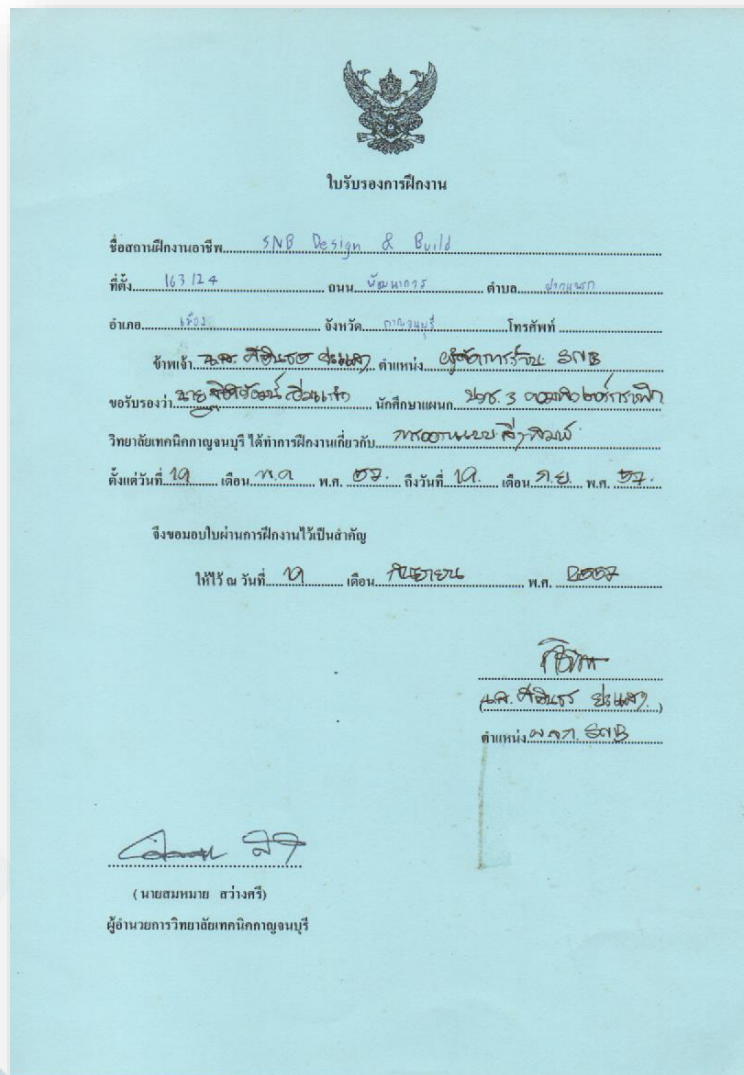 ใบรับรองการฝึกงาน
ชื่อสถานฝึกงานอาชีพ SNB Design & Build
ที่ตั้ง 163/24 ถนน พัฒนาการ ตำบล ปากแพรก
อำเภอ เมือง จังหวัด กาญจนบุรี โทรศัพท์
ข้าพเจ้า น.ส. ตำแหน่ง ผู้จัดการร้าน SNB
ขอรับรองว่า นาย นักศึกษาแผนก ปวช. 3 คอมพิวเตอร์กราฟิก
วิทยาลัยเทคนิคกาญจนบุรี ได้ทำการฝึกงานเกี่ยวกับ การออกแบบสิ่งพิมพ์
ตั้งแต่วันที่ 19 เดือน พ.ค. พ.ศ. 57. ถึงวันที่ 19. เดือน ก.ย. พ.ศ. 57.
จึงขอมอบใบผ่านการฝึกงานไว้เป็นสำคัญ
ให้ไว้ ณ วันที่ 19 เดือน กันยายน พ.ศ. 2557
(น.ส.)
ตำแหน่ง ผ.จ.ก. SNB
(นายสมหมาย สว่างศรี)
ผู้อำนวยการวิทยาลัยเทคนิคกาญจนบุรี